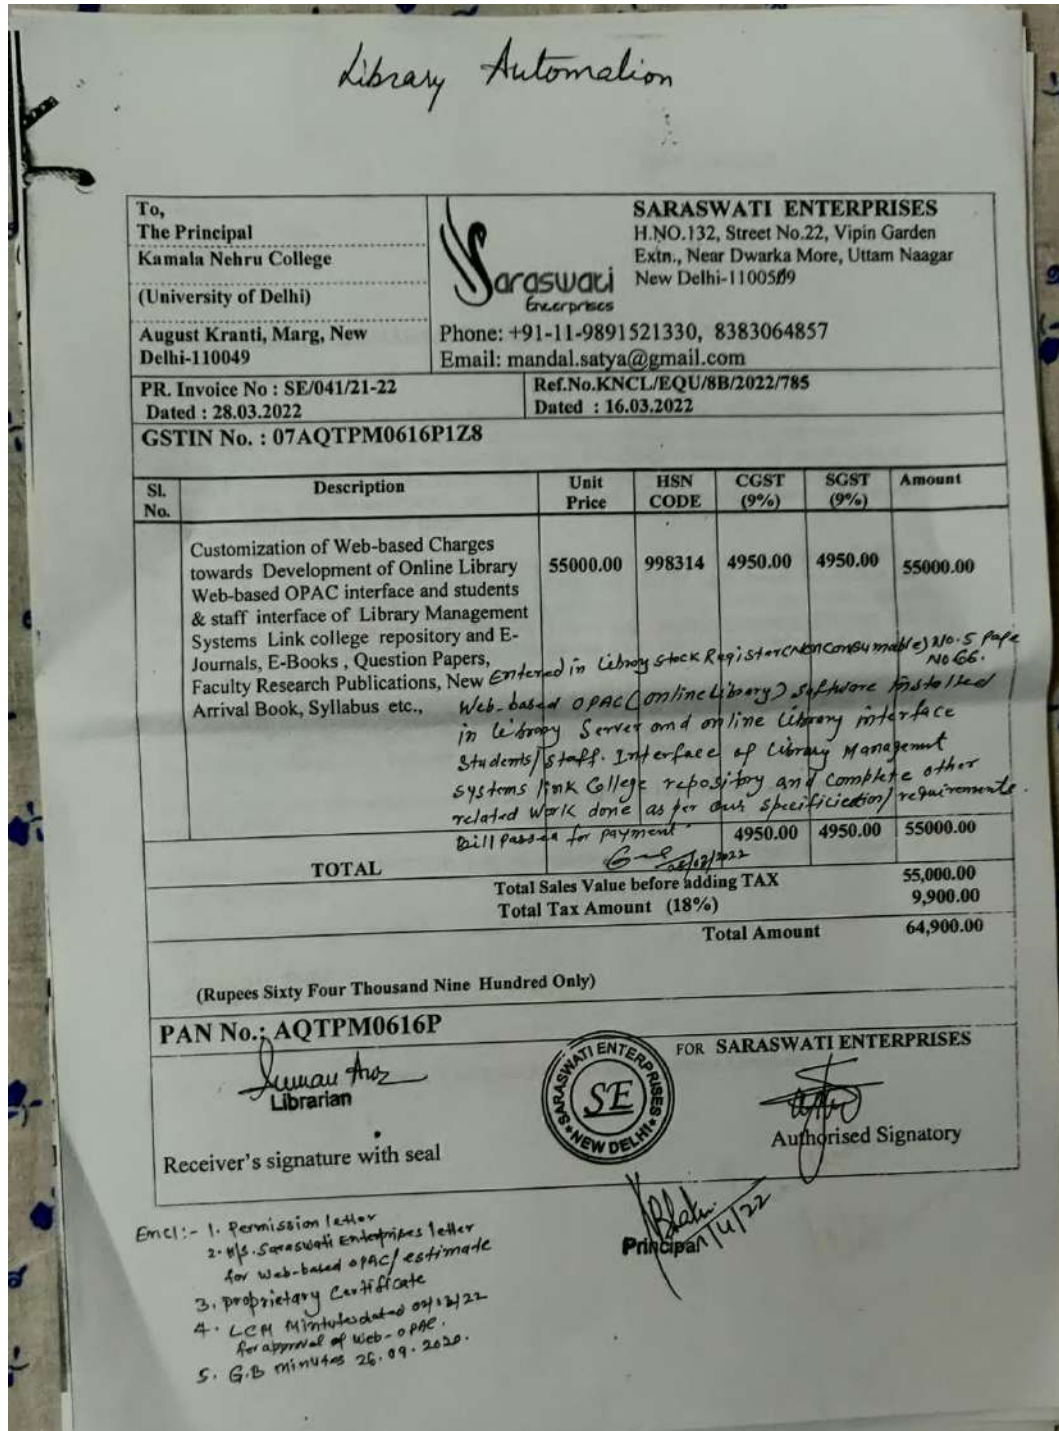 Library Automation
To,
The Principal
Kamala Nehru College
(University of Delhi)
August Kranti, Marg, New
Delhi-110049
Saraswati
Enterprises
SARASWATI ENTERPRISES
H.NO.132, Street No.22, Vipin Garden
Extn., Near Dwarka More, Uttam Naagar
New Delhi-110059
Phone: +91-11-9891521330, 8383064857
Email: mandal.satya@gmail.com
PR. Invoice No : SE/041/21-22
Dated : 28.03.2022
Ref.No.KNCL/EQU/8B/2022/785
Dated : 16.03.2022
GSTIN No. : 07AQTPM0616P1Z8
Sl. No. Description Unit Price HSN CODE CGST (9%) SGST (9%) Amount
Customization of Web-based Charges
towards Development of Online Library 55000.00 998314 4950.00 4950.00 55000.00
Web-based OPAC interface and students
& staff interface of Library Management
Systems Link college repository and E-
Journals, E-Books , Question Papers,
Faculty Research Publications, New
Arrival Book, Syllabus etc.,
Entered in Library Stock Register (Nonconsumable) No.5 Page
No 66.
Web-based OPAC (online Library) Software Installed
in Library Server and online Library interface
Students/Staff. Interface of Library Managemnt
Systems link College repository and complete other
related work done as per our specificiection/requirements.
Bill Passed for payment
4950.00 4950.00 55000.00
TOTAL
Total Sales Value before adding TAX 55,000.00
Total Tax Amount (18%) 9,900.00
Total Amount 64,900.00
(Rupees Sixty Four Thousand Nine Hundred Only)
PAN No.: AQTPM0616P
Librarian
Receiver's signature with seal
SARASWATI ENTERPRISES
SE
NEW DELHI
FOR SARASWATI ENTERPRISES
Authorised Signatory
Principal
Encl:- 1. Permission letter
2. M/S. Saraswati Enterprises letter
for web-based OPAC/estimate
3. Proprietary Certificate
4. LCM Mintutes dated
for approval of Web-OPAC.
5. G.B minutes 26.09.2020.